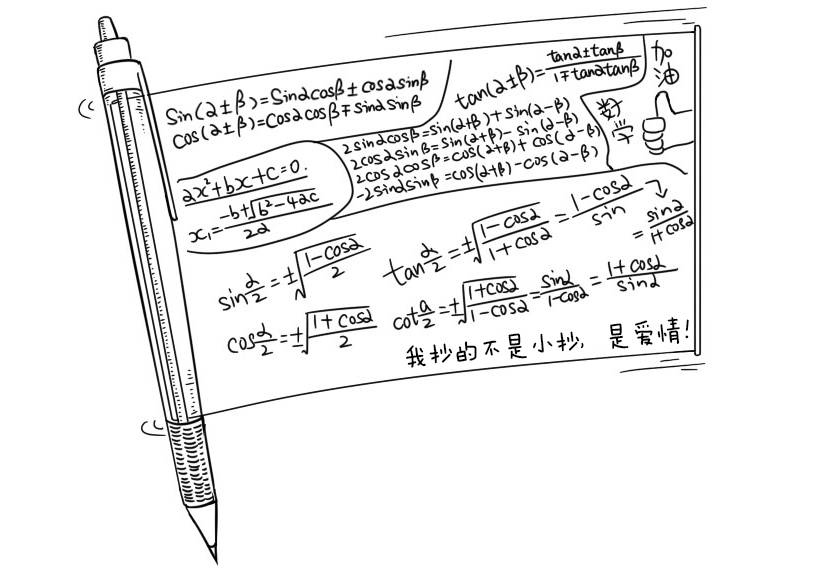 Sin(α±β)=Sinαcosβ±cosαsinβ
cos(α±β)=cosαcosβ∓sinαsinβ
tan(α±β)=tanα±tanβ/1∓tanαtanβ
加油
数学
2sinαcosβ=sin(α+β)+sin(α-β)
2cosαsinβ=sin(α+β)-sin(α-β)
2cosαcosβ=cos(α+β)+cos(α-β)
-2sinαsinβ=cos(α+β)-cos(α-β)
ax²+bx+c=0.
x₁=-b+√b²-4ac/2a
sinα/2=±√1-cosα/2
tanα/2=±√1-cosα/1+cosα=1-cosα/sin
=sinα/1+cosα
cosα/2=±√1+cosα/2
cota/2=±√1+cosα/1-cosα=sinα/1-cosα=1+cosα/sinα
我抄的不是小抄,是爱情!